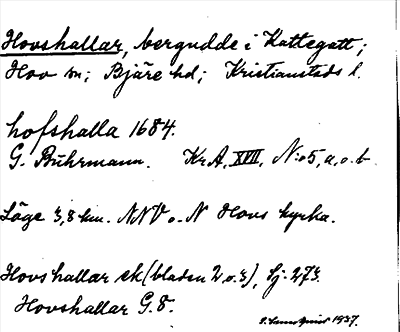 Hovshallar, bergudde i Kattegatt;
Hov sn; Bjäre hd; Kristianstads l.
hofshalla 1684.
G. Buhrmann. KrA, XVII, N:o 5, a.o.b.
Läge 3,8 km. NNV o. N Hovs kyrka.
Hovshallar ek. (bladen 2 o. 3), Sj. 273.
Hovshallar G.8.
1937.